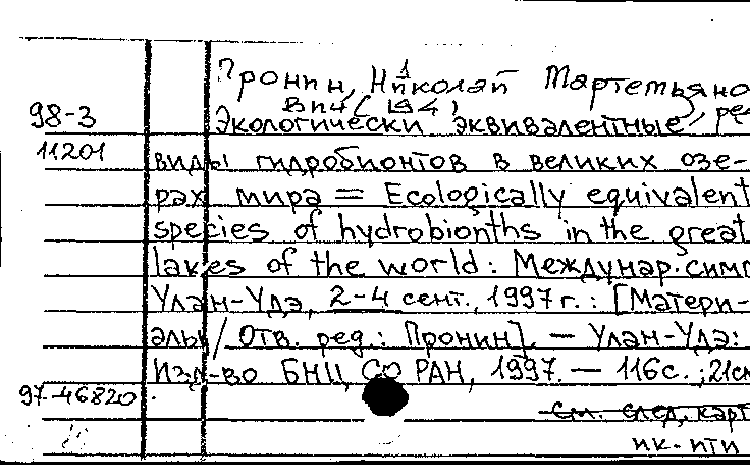 Пронин, Николай Мартемьяно
98-3
Экологически эквивалентные ре
11201
виды гидробионтов в великих озе-
рах мира = Ecologically equivalent
species of hydrobionths in the great
lakes of the world: Междунар. симп
Улан-Удэ, 2-4 сент., 1997 г.: [Матери-
алы / Отв. ред.: Пронин]. — Улан-Удэ:
Изд-во БНЦ СО РАН, 1997. — 116 с.; 21см
97-46820
См. след. карт
нк. пти